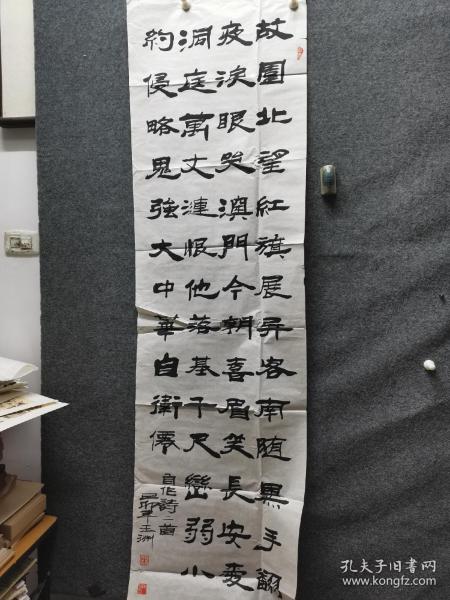 故園北望紅旗展异客南随黑手翻
夜淚眼哭澳門今朝喜眉笑長安變
洞庭萬丈漣恨他落基千尺巒弱小
約侵略強大中華自衛
自作詩二首
年玉洲
孔夫子旧书网
www.kongfz.com